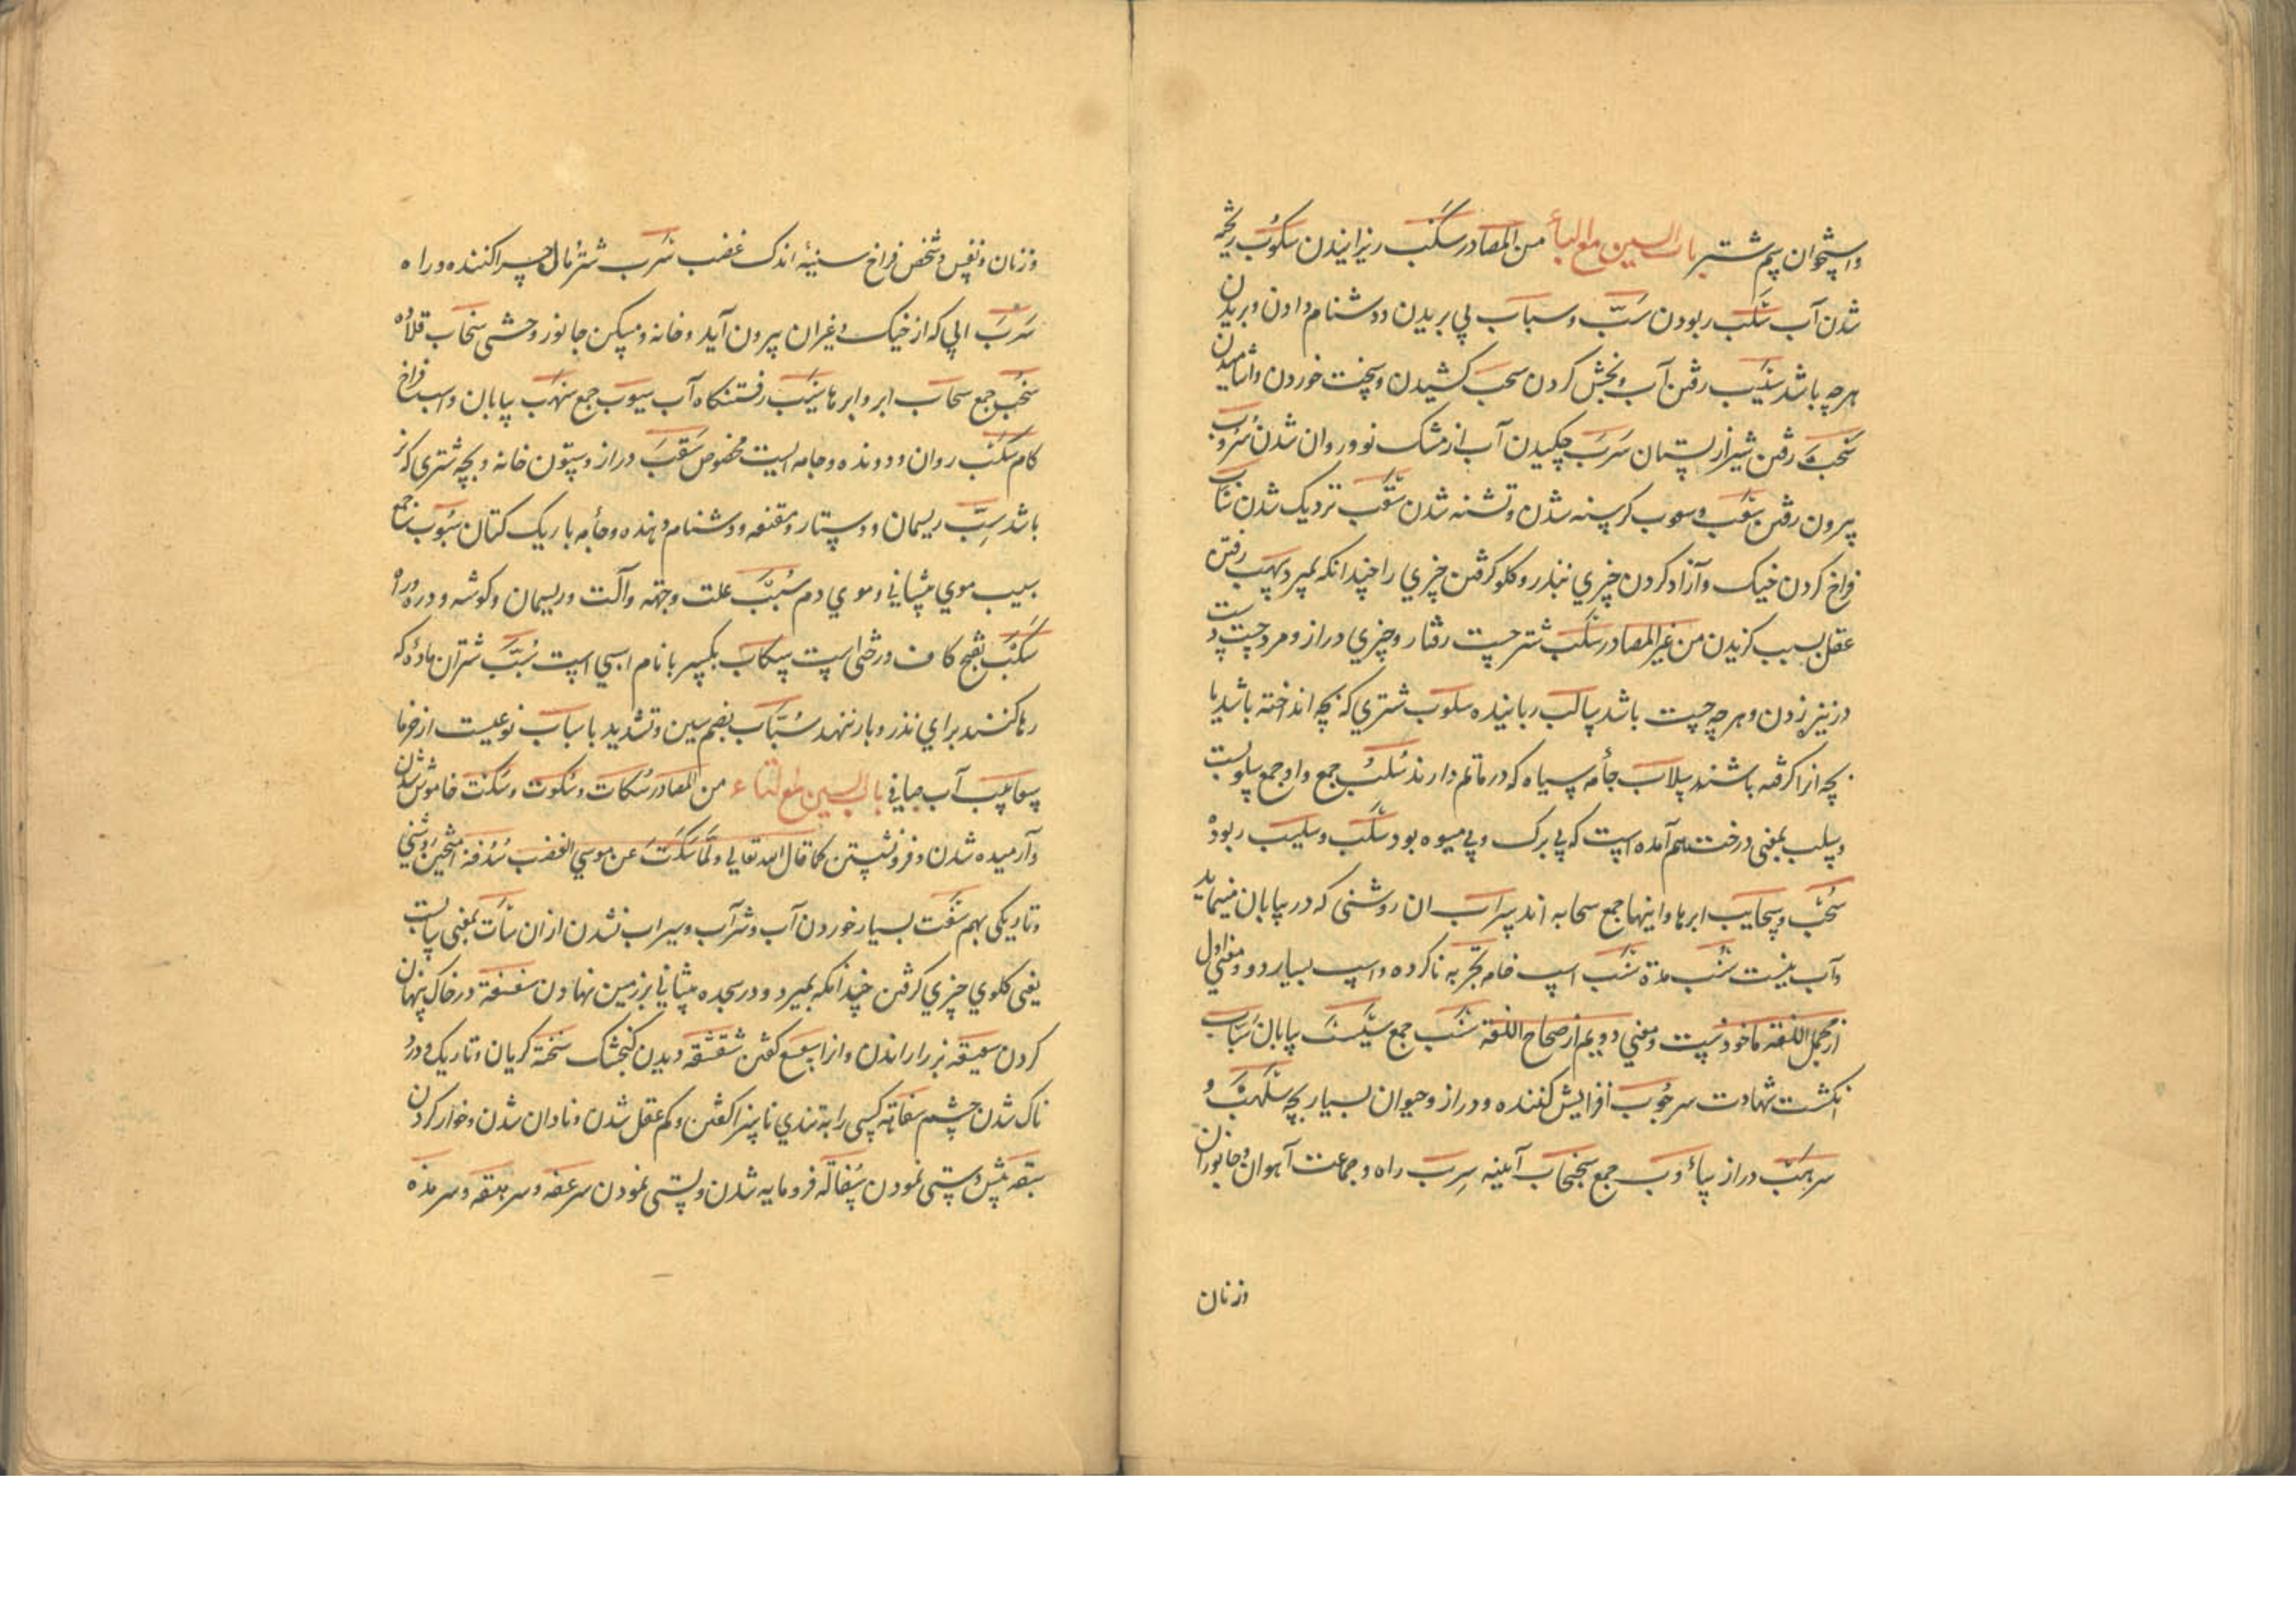 واستخوان سم شتر باب السين مع الباء من المصادر سكب ريزانيدن سكوب ريخته
شدن آب سلب ربودن سبّ وسباب پي بريدن ودشنام دادن وبريدن
هرچه باشد سيب رفتن آب وبخش كردن سحب كشيدن وسخت خوردن وآشاميدن
رفتن شير از پستان سرب چكيدن آب از مشك نو وروان شدن سروب
بيرون رفتن سغب وسغوب كرسنه شدن وتشنه شدن سقب نزديك شدن
فراخ كردن خيك وآزاد كردن چيزي بنذر وكلو كرفتن چيزي را چندانكه بميرد سهب رفتن
عقل بسبب كزيدن من غير المصادر سلب شتر چست رفتار وچيزي دراز ومرد چست دست
در نيزه زدن وهرچه چست باشد سالب رباينده سلوب شتري كه بچه انداخته باشد يا
بچه انرا كرفته باشند سلاب جامه سياه كه در ماتم دارند سلب جمع واو جمع سلوبست
وسلب بمعنى درخت هم آمده است كه بي برك وبي ميوه بود سلب وسليب ربوده
سحب وسحايب ابرها واينها جمع سحابه اند سراب ان روشنى كه در بيابان مينمايد
وآب نيست اسپ خام تجربه ناكرده واسپ بسيار دو ومعني اول
از مجمل اللغة ماخوذست ومعني دويم از صحاح اللغة جمع بيابان سباب
انكشت شهادت سرحوب افزايش كننده ودراز وحيوان بسيار بچه سلهب و
سرهب دراز جمع سنجاب آيينه سرب راه وجماعت آهوان وجانوران
وزنان
وزنان ونفس وشخص فراخ سينه اندك غضب سرب شتر ومال چراكننده وراه
سرب ابي كه از خيك وغيران بيرون آيد وخانه ومسكن جانور وحشى سخاب قلاده
سخب جمع سحاب ابر وابرها سيب رفتنكاه آب سيوب جمع سهب بيابان واسب فراخ
كام سكب روان ودونده وجامه ايست مخصوص سقب دراز وستون خانه وبچه شتري كه نر
باشد سبّ ريسمان ودستار ومقنعه ودشنام دهنده وجامه باريك كتان سبوب جمع
سبيب موي پيشاني وموي دم سبب علت وجهة وآلت وريسمان وكوشه ودر وراه
سكب بفتح كاف درختى است سكاب بكسر با نام اسبي است سيب شتران ماده كه
رها كنند براي نذر وبار ننهند سياب بضم سين وتشديد با سياب نوعيست از خرما
سعابيب آب صافي باب السين مع التاء من المصادر سكات وسكوت وسكت خاموش شدن
وآرميده شدن وفرو نشستن كما قال الله تعالى ولما سكت عن موسي الغضب سدفة آميختن روشني
وتاريكى بهم سفت بسيار خوردن آب وشراب وسيراب نشدن ازان سأت بمعنى سأب
يعنى كلوي چيزي كرفتن چندانكه بميرد ودر سجده پيشاني بر زمين نهادن سغسغة در خاك پنهان
كردن بز را راندن وانرا كفتن شقشقة ديدن كنجشك سخنة كريان وتاريك ودرد
ناك شدن چشم سفاهة كسى را به تندي ناسزا كفتن وكم عقل شدن ونادان شدن وخوار كردن
سبقة پيش دستى نمودن سفالة فرومايه شدن وپستى نمودن سرعفة وسرهفة وسرهدة